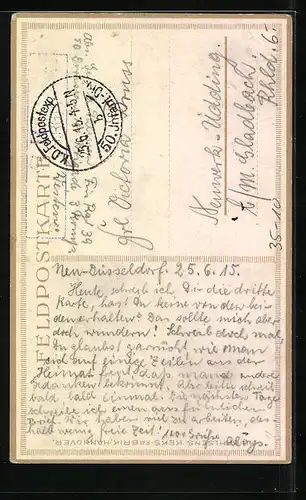 FELDPOSTKARTE
K.D. Feldpostexp.
25.6.15. 4-5 N
50. Infant.-Div.
Frl. Victoria
Neuwerk-Üdding.
b/M. Gladbach.
Rhld.
35-10
Neu-Düsseldorf. 25.6.15.
Heute schreib ich Dir die dritte
Karte, hast Du keine von den bei-
den erhalten? Das sollte mich aber
doch wundern! Schreib doch mal,
Du glaubst garnicht, wie man
sich auf einige Zeilen aus der
Heimat freut, daß man andere
Gedanken bekommt. Also bitte schreib
bald bald einmal. Die nächsten Tage
schreibe ich einen ausführlichen
Brief. Wir haben viel zu arbeiten, des-
halb wenig freie Zeit! 1000 Grüße
Aloys.
H. BAHLSENS KEKS-FABRIK, HANNOVER